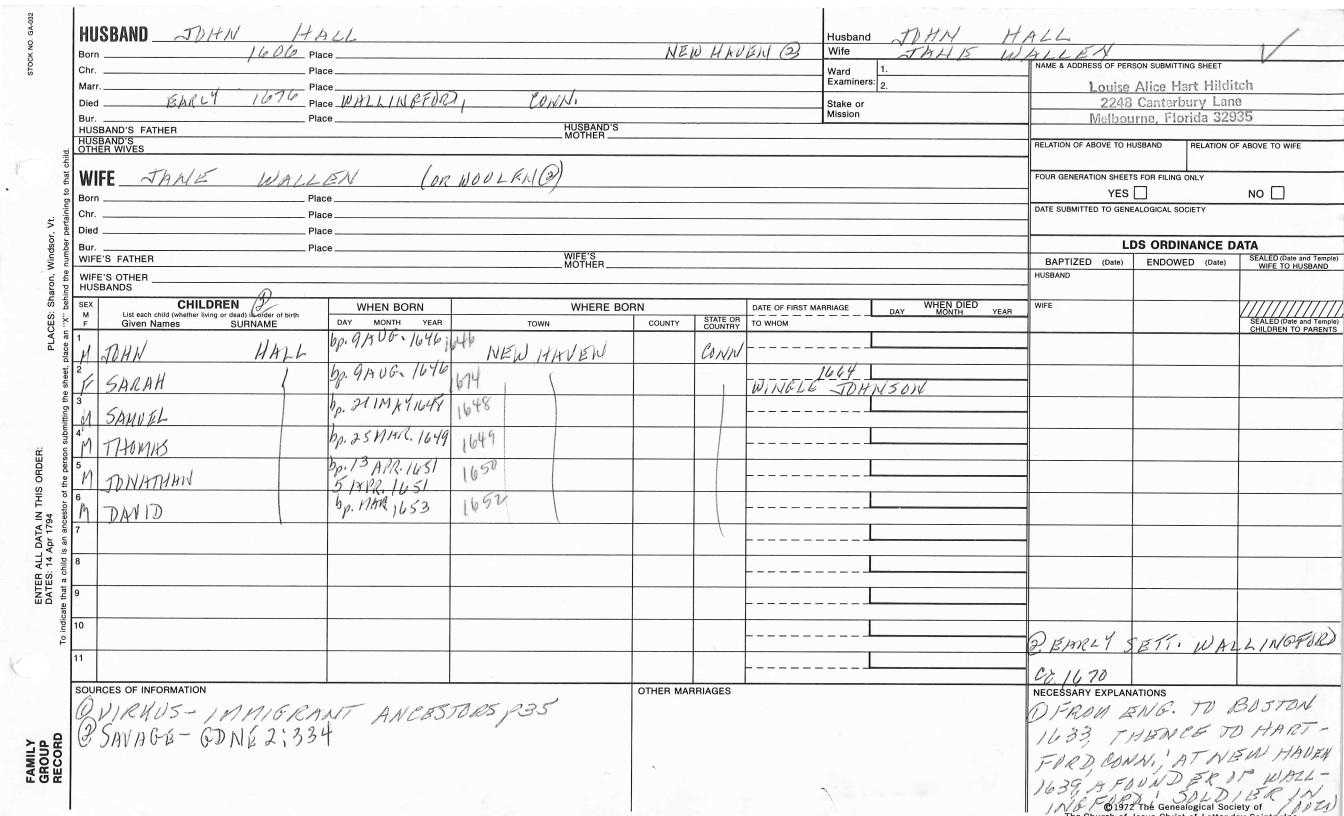 STOCK NO. GA-032
HUSBAND JOHN HALL
Born 1606 Place NEW HAVEN (2)
Chr. Place
Marr. Place
Died EARLY 1676 Place WALLINGFORD, CONN.
Bur. Place
HUSBAND'S FATHER HUSBAND'S MOTHER
HUSBAND'S OTHER WIVES
Husband JOHN HALL
Wife JANE WALLEN
Ward Examiners: 1.
2.
Stake or Mission
NAME & ADDRESS OF PERSON SUBMITTING SHEET
Louise Alice Hart Hilditch
2248 Canterbury Lane
Melbourne, Florida 32935
RELATION OF ABOVE TO HUSBAND RELATION OF ABOVE TO WIFE
FOUR GENERATION SHEETS FOR FILING ONLY
YES NO
DATE SUBMITTED TO GENEALOGICAL SOCIETY
WIFE JANE WALLEN (OR WOOLEN (2))
Born Place
Chr. Place
Died Place
Bur. Place
WIFE'S FATHER WIFE'S MOTHER
WIFE'S OTHER HUSBANDS
LDS ORDINANCE DATA
BAPTIZED (Date) ENDOWED (Date) SEALED (Date and Temple) WIFE TO HUSBAND
HUSBAND
WIFE
SEALED (Date and Temple) CHILDREN TO PARENTS
SEX M F
CHILDREN (2)
List each child (whether living or dead) in order of birth
Given Names SURNAME
WHEN BORN
DAY MONTH YEAR
WHERE BORN
TOWN COUNTY STATE OR COUNTRY
DATE OF FIRST MARRIAGE
TO WHOM
WHEN DIED
DAY MONTH YEAR
1 M JOHN HALL bp. 9 AUG. 1646 1646 NEW HAVEN CONN
2 F SARAH bp. 9 AUG. 1646 1674 1664
WINGLE JOHNSON
3 M SAMUEL bp. 21 MAY 1648 1648
4 M THOMAS bp. 25 MAR. 1649 1649
5 M JONATHAN bp. 13 APR. 1651 1650
5 APR. 1651
6 M DAVID bp. MAR 1653 1652
7
8
9
10
11
(2) EARLY SETT. WALLINGFORD
Ca 1670
SOURCES OF INFORMATION
(1) VIRKUS - IMMIGRANT ANCESTORS p35
(2) SAVAGE - GDNE 2:334
OTHER MARRIAGES
NECESSARY EXPLANATIONS
(1) FROM ENG. TO BOSTON
1633, THENCE TO HART-
FORD, CONN.; AT NEW HAVEN
1639, A FOUNDER OF WALL-
INGFORD; SOLDIER IN
©1972 The Genealogical Society of
The Church of Jesus Christ of Latter-day Saints
PLACES: Sharon, Windsor, Vt.
To indicate that a child is an ancestor of the person submitting the sheet, place an "X" behind the number pertaining to that child.
ENTER ALL DATA IN THIS ORDER:
DATES: 14 Apr 1794
FAMILY
GROUP
RECORD